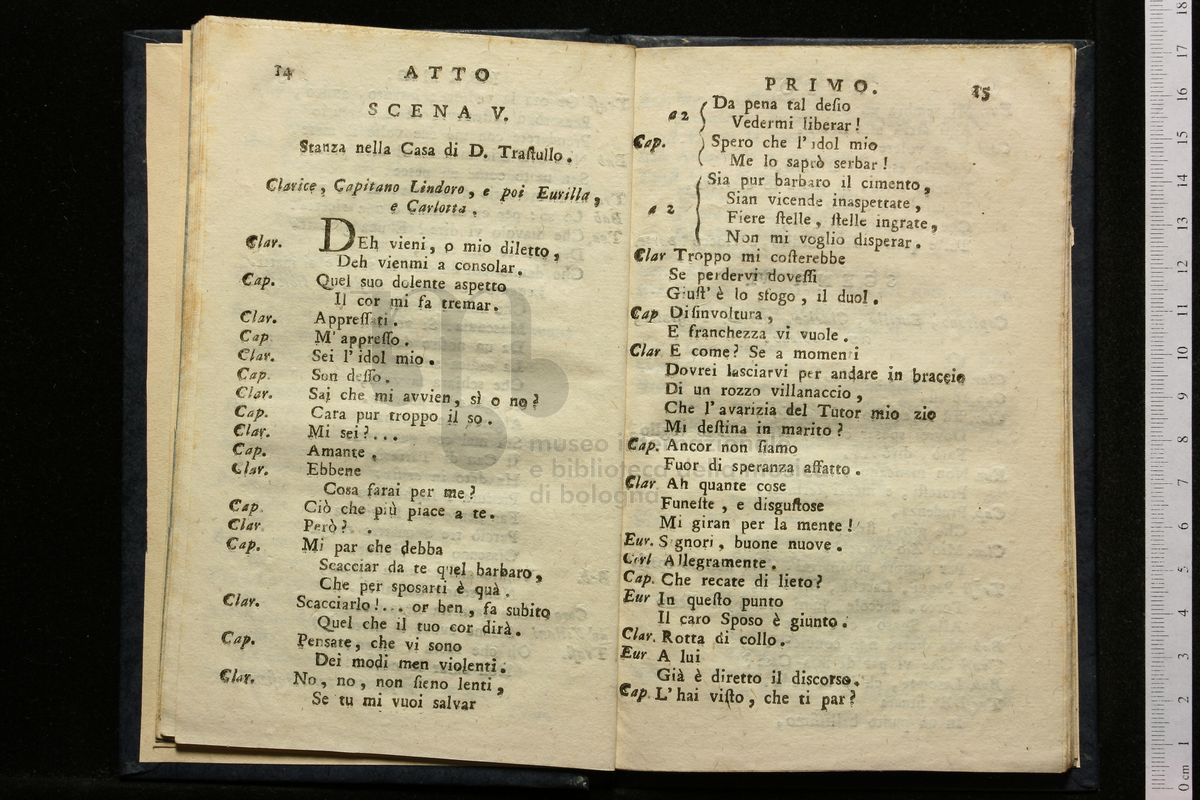 14 ATTO
SCENA V.
Stanza nella Casa di D. Traſtullo.
Clarice, Capitano Lindoro, e poi Eurilla,
e Carlotta.
Clar. DEh vieni, o mio diletto,
Deh vienmi a conſolar.
Cap. Quel ſuo dolente aſpetto
Il cor mi fa tremar.
Clar. Appreſſati.
Cap M' appreſſo.
Clar. Sei l' idol mio.
Cap. Son deſſo.
Clar. Sai che mi avvien, sì o no?
Cap. Cara pur troppo il so.
Clar. Mi sei?...
Cap. Amante.
Clar. Ebbene
Coſa farai per me?
Cap. Ciò che più piace a te.
Clar. Però?.
Cap. Mi par che debba
Scacciar da te quel barbaro,
Che per spoſarti è quà.
Clar. Scacciarlo!... or ben, fa ſubito
Quel che il tuo cor dirà.
Cap. Penſate, che vi sono
Dei modi men violenti.
Clar. No, no, non ſieno lenti,
Se tu mi vuoi salvar
PRIMO. 15
a 2 Da pena tal deſio
Vedermi liberar!
Cap. Spero che l' idol mio
Me lo saprò serbar!
a 2 Sia pur barbaro il cimento,
Sian vicende inaſpettate,
Fiere ſtelle, ſtelle ingrate,
Non mi voglio diſperar.
Clar Troppo mi coſterebbe
Se perdervi doveſſi
Giuſt' è lo sfogo, il duol.
Cap Diſinvoltura,
E franchezza vi vuole.
Clar E come? Se a momenti
Dovrei laſciarvi per andare in braccio
Di un rozzo villanaccio,
Che l' avarizia del Tutor mio zio
Mi deſtina in marito?
Cap. Ancor non ſiamo
Fuor di speranza affatto.
Clar Ah quante cose
Funeſte, e disguſtose
Mi giran per la mente!
Eur. Signori, buone nuove.
Carl Allegramente.
Cap. Che recate di lieto?
Eur In queſto punto
Il caro Sposo è giunto.
Clar. Rotta di collo.
Eur A lui
Già è diretto il discorso.
Cap. L' hai viſto, che ti par?
museo internazionale
e biblioteca della musica
di bologna
0 cm 1 2 3 4 5 6 7 8 9 10 11 12 13 14 15 16 17 18